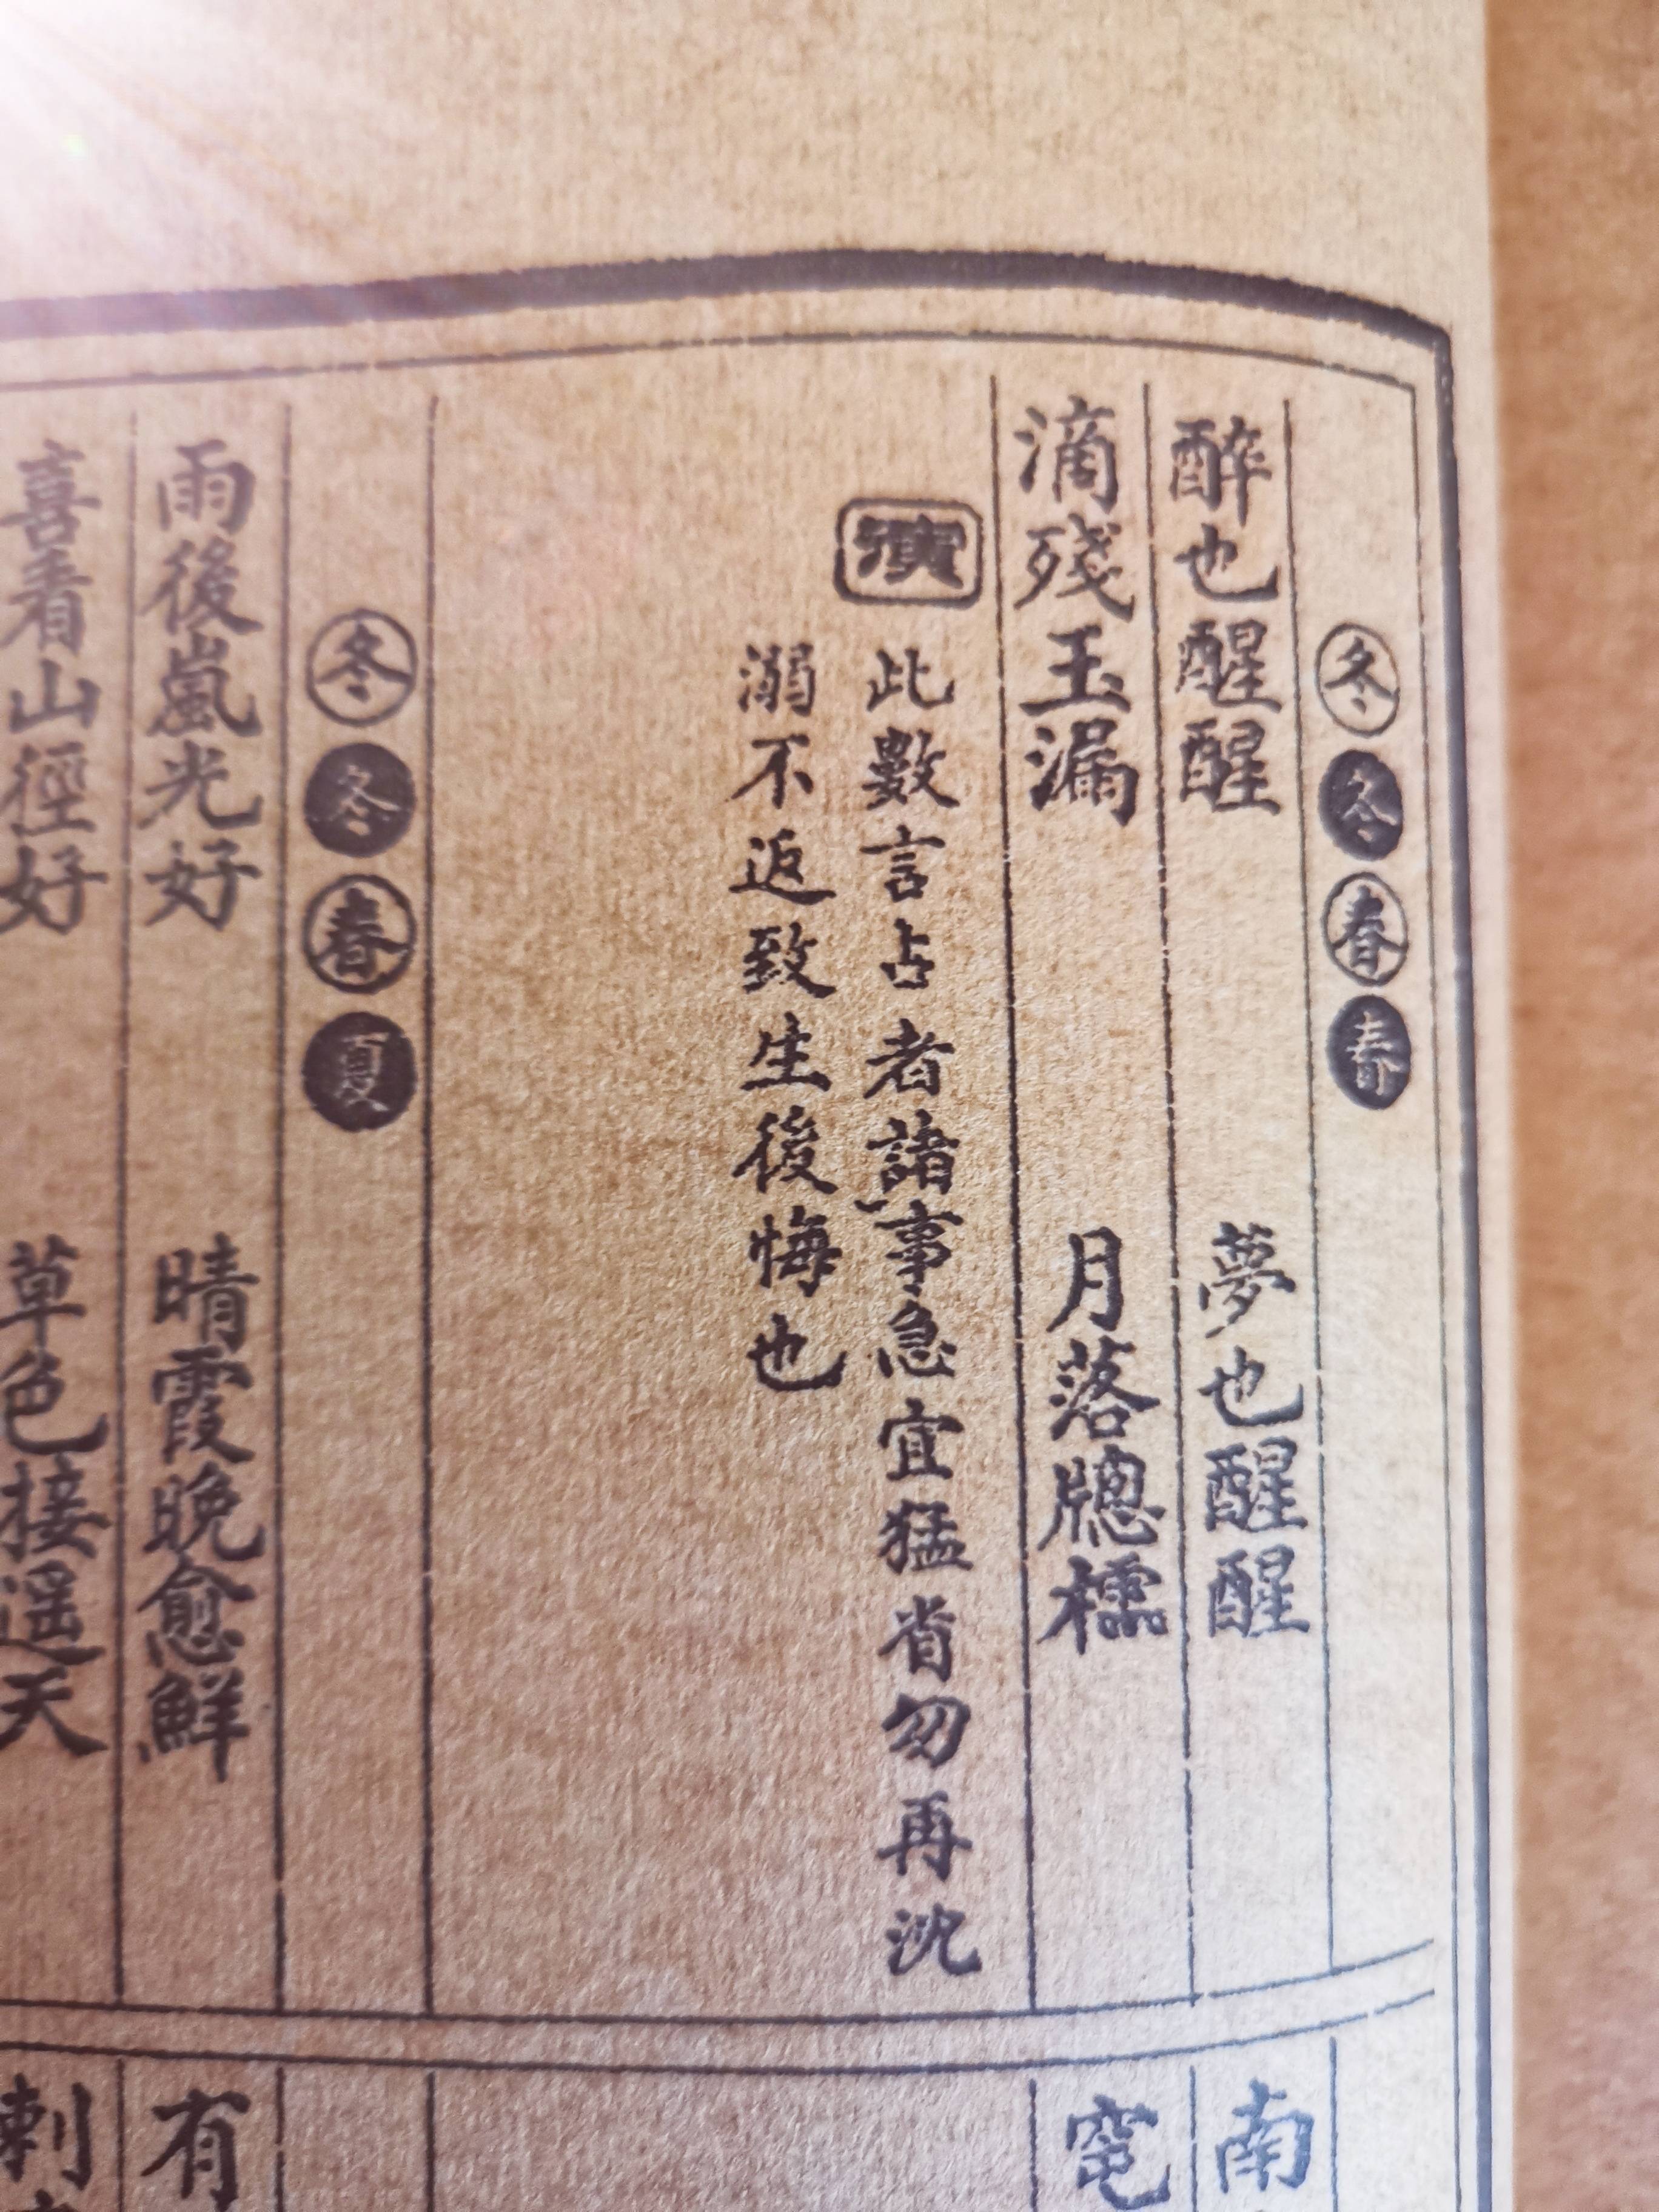 冬冬春春
醉也醒醒 夢也醒醒
滴殘玉漏 月落牕櫺
演
此數言占者諸事急宜猛省勿再沈
溺不返致生後悔也
冬冬春夏
雨後嵐光好 晴霞晚愈鮮
喜看山徑好 草色接遥天
南
窀
有